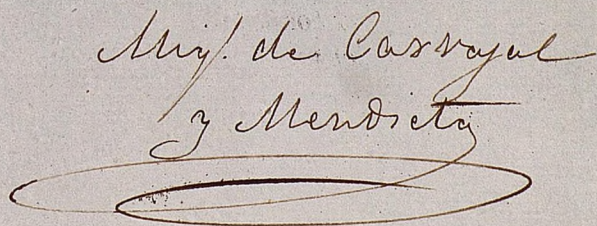 Migl. de Carvajal
y Mendieta